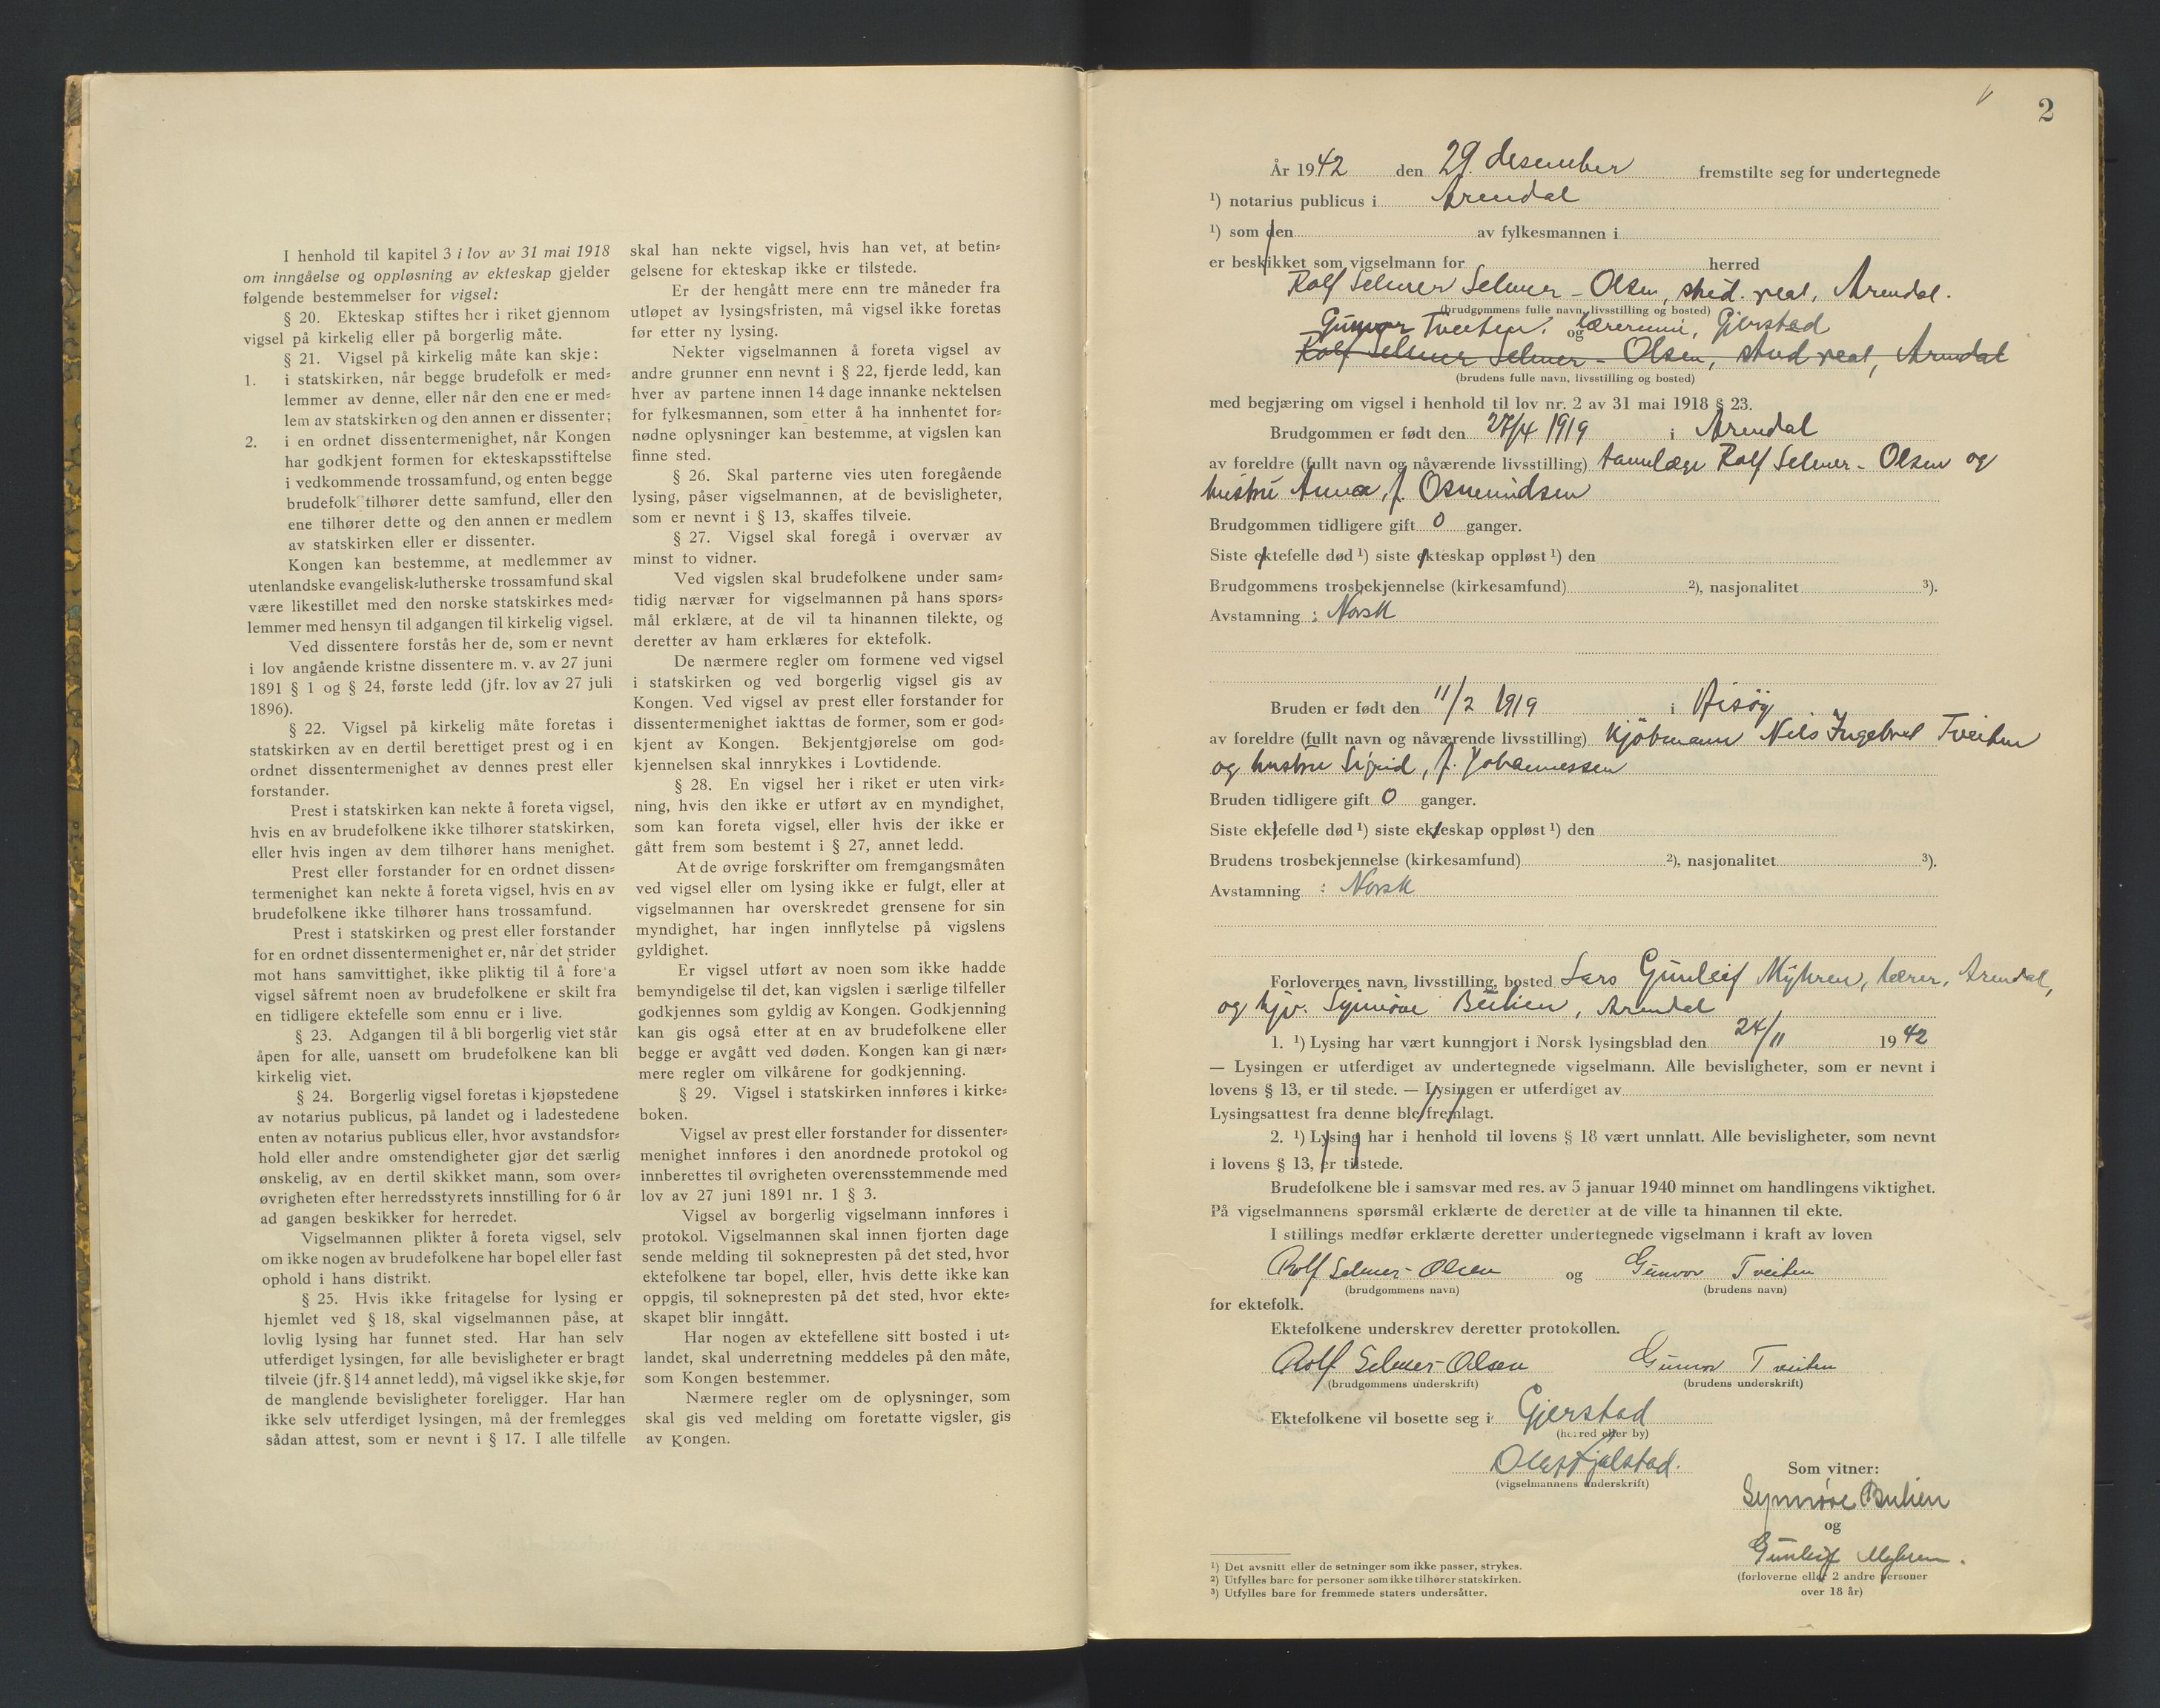 I henhold til kapitel 3 i lov av 31 mai 1918
om inngåelse og oppløsning av ekteskap gjelder
følgende bestemmelser for vigsel:
§ 20. Ekteskap stiftes her i riket gjennom
vigsel på kirkelig eller på borgerlig måte.
§ 21. Vigsel på kirkelig måte kan skje:
1. i statskirken, når begge brudefolk er med=
lemmer av denne, eller når den ene er med=
lem av statskirken og den annen er dissenter;
2. i en ordnet dissentermenighet, når Kongen
har godkjent formen for ekteskapsstiftelse
i vedkommende trossamfund, og enten begge
brudefolk tilhører dette samfund, eller den
ene tilhører dette og den annen er medlem
av statskirken eller er dissenter.
Kongen kan bestemme, at medlemmer av
utenlandske evangelisk=lutherske trossamfund skal
være likestillet med den norske statskirkes med=
lemmer med hensyn til adgangen til kirkelig vigsel.
Ved dissentere forstås her de, som er nevnt
i lov angående kristne dissentere m. v. av 27 juni
1891 § 1 og § 24, første ledd (jfr. lov av 27 juli
1896).
§ 22. Vigsel på kirkelig måte foretas i
statskirken av en dertil berettiget prest og i en
ordnet dissentermenighet av dennes prest eller
forstander.
Prest i statskirken kan nekte å foreta vigsel,
hvis en av brudefolkene ikke tilhører statskirken,
eller hvis ingen av dem tilhører hans menighet.
Prest eller forstander for en ordnet dissen=
termenighet kan nekte å foreta vigsel, hvis en av
brudefolkene ikke tilhører hans trossamfund.
Prest i statskirken og prest eller forstander
for en ordnet dissentermenighet er, når det strider
mot hans samvittighet, ikke pliktig til å foreta
vigsel såfremt noen av brudefolkene er skilt fra
en tidligere ektefelle som ennu er i live.
§ 23. Adgangen til å bli borgerlig viet står
åpen for alle, uansett om brudefolkene kan bli
kirkelig viet.
§ 24. Borgerlig vigsel foretas i kjøpstedene
av notarius publicus, på landet og i ladestedene
enten av notarius publicus eller, hvor avstandsfor=
hold eller andre omstendigheter gjør det særlig
ønskelig, av en dertil skikket mann, som over=
øvrigheten efter herredsstyrets innstilling for 6 år
ad gangen beskikker for herredet.
Vigselmannen plikter å foreta vigsel, selv
om ikke nogen av brudefolkene har bopel eller fast
ophold i hans distrikt.
§ 25. Hvis ikke fritagelse for lysing er
hjemlet ved § 18, skal vigselmannen påse, at
lovlig lysing har funnet sted. Har han selv
utferdiget lysingen, før alle bevisligheter er bragt
tilveie (jfr. § 14 annet ledd), må vigsel ikke skje, før
de manglende bevisligheter foreligger. Har han
ikke selv utferdiget lysingen, må der fremlegges
sådan attest, som er nevnt i § 17. I alle tilfelle
skal han nekte vigsel, hvis han vet, at betin=
gelsene for ekteskap ikke er tilstede.
Er der hengått mere enn tre måneder fra
utløpet av lysingsfristen, må vigsel ikke foretas
før etter ny lysing.
Nekter vigselmannen å foreta vigsel av
andre grunner enn nevnt i § 22, fjerde ledd, kan
hver av partene innen 14 dage innanke nektelsen
for fylkesmannen, som etter å ha innhentet for=
nødne oplysninger kan bestemme, at vigslen kan
finne sted.
§ 26. Skal parterne vies uten foregående
lysing, påser vigselmannen, at de bevisligheter,
som er nevnt i § 13, skaffes tilveie.
§ 27. Vigsel skal foregå i overvær av
minst to vidner.
Ved vigslen skal brudefolkene under sam=
tidig nærvær for vigselmannen på hans spørs=
mål erklære, at de vil ta hinannen tilekte, og
deretter av ham erklæres for ektefolk.
De nærmere regler om formene ved vigsel
i statskirken og ved borgerlig vigsel gis av
Kongen. Ved vigsel av prest eller forstander for
dissentermenighet iakttas de former, som er god=
kjent av Kongen. Bekjentgjørelse om god=
kjennelsen skal innrykkes i Lovtidende.
§ 28. En vigsel her i riket er uten virk=
ning, hvis den ikke er utført av en myndighet,
som kan foreta vigsel, eller hvis der ikke er
gått frem som bestemt i § 27, annet ledd.
At de øvrige forskrifter om fremgangsmåten
ved vigsel eller om lysing ikke er fulgt, eller at
vigselmannen har overskredet grensene for sin
myndighet, har ingen innflytelse på vigslens
gyldighet.
Er vigsel utført av noen som ikke hadde
bemyndigelse til det, kan vigslen i særlige tilfeller
godkjennes som gyldig av Kongen. Godkjenning
kan gis også etter at en av brudefolkene eller
begge er avgått ved døden. Kongen kan gi nær=
mere regler om vilkårene for godkjenning.
§ 29. Vigsel i statskirken innføres i kirke=
boken.
Vigsel av prest eller forstander for dissenter=
menighet innføres i den anordnede protokol og
innberettes til øvrigheten overensstemmende med
lov av 27 juni 1891 nr. 1 § 3.
Vigsel av borgerlig vigselmann innføres i
protokol. Vigselmannen skal innen fjorten dage
sende melding til soknepresten på det sted, hvor
ektefolkene tar bopel, eller, hvis dette ikke kan
oppgis, til soknepresten på det sted, hvor ekte=
skapet blir inngått.
Har nogen av ektefellene sitt bosted i ut=
landet, skal underretning meddeles på den måte,
som Kongen bestemmer.
Nærmere regler om de oplysninger, som
skal gis ved melding om foretatte vigsler, gis
av Kongen.
2
År 1942 den 29. desember fremstilte seg for undertegnede
¹) notarius publicus i Arendal
¹) som den av fylkesmannen i
er beskikket som vigselmann for herred
Rolf Selmer Selmer-Olsen, stud. real, Arendal.
(brudgommens fulle navn, livsstilling og bosted)
og
Gunvor Tveiten, lærerinne, Gjerstad
Rolf Selmer Selmer-Olsen, stud real, Arendal
(brudens fulle navn, livsstilling og bosted)
med begjæring om vigsel i henhold til lov nr. 2 av 31 mai 1918 § 23.
Brudgommen er født den 27/4 1919 i Arendal
av foreldre (fullt navn og nåværende livsstilling) tannlæge Rolf Selmer-Olsen og
hustru Anna, f. Osmundsen
Brudgommen tidligere gift 0 ganger.
Siste ektefelle død ¹) siste ekteskap oppløst ¹) den
Brudgommens trosbekjennelse (kirkesamfund) ²), nasjonalitet ³).
Avstamning : Norsk
Bruden er født den 11/2 1919 i Risör
av foreldre (fullt navn og nåværende livsstilling) kjöbmann Nils Ingebret Tveiten
og hustru Sigrid, f. Johannessen
Bruden tidligere gift 0 ganger.
Siste ektefelle død ¹) siste ekteskap oppløst ¹) den
Brudens trosbekjennelse (kirkesamfund) ²), nasjonalitet ³).
Avstamning : Norsk
Forlovernes navn, livsstilling, bosted Lars Gunleif Myhren, lærer, Arendal,
og hjv. Synnøve Bulien, Arendal
1. ¹) Lysing har vært kunngjort i Norsk lysingsblad den 24/11 1942
— Lysingen er utferdiget av undertegnede vigselmann. Alle bevisligheter, som er nevnt i
lovens § 13, er til stede. — Lysingen er utferdiget av
Lysingsattest fra denne ble fremlagt.
2. ¹) Lysing har i henhold til lovens § 18 vært unnlatt. Alle bevisligheter, som nevnt
i lovens § 13, er tilstede.
Brudefolkene ble i samsvar med res. av 5 januar 1940 minnet om handlingens viktighet.
På vigselmannens spørsmål erklærte de deretter at de ville ta hinannen til ekte.
I stillings medfør erklærte deretter undertegnede vigselmann i kraft av loven
Rolf Selmer-Olsen og Gunvor Tveiten
(brudgommens navn) (brudens navn)
for ektefolk.
Ektefolkene underskrev deretter protokollen.
Rolf Selmer-Olsen Gunvor Tveiten
(brudgommens underskrift) (brudens underskrift)
Ektefolkene vil bosette seg i Gjerstad
(herred eller by)
(vigselmannens underskrift)
Som vitner:
Synnøve Bulien
og
Gunleif Myhren.
(forloverne eller 2 andre personer
over 18 år)
¹) Det avsnitt eller de setninger som ikke passer, strykes.
²) Utfylles bare for personer som ikke tilhører statskirken.
³) Utfylles bare for fremmede staters undersåtter.